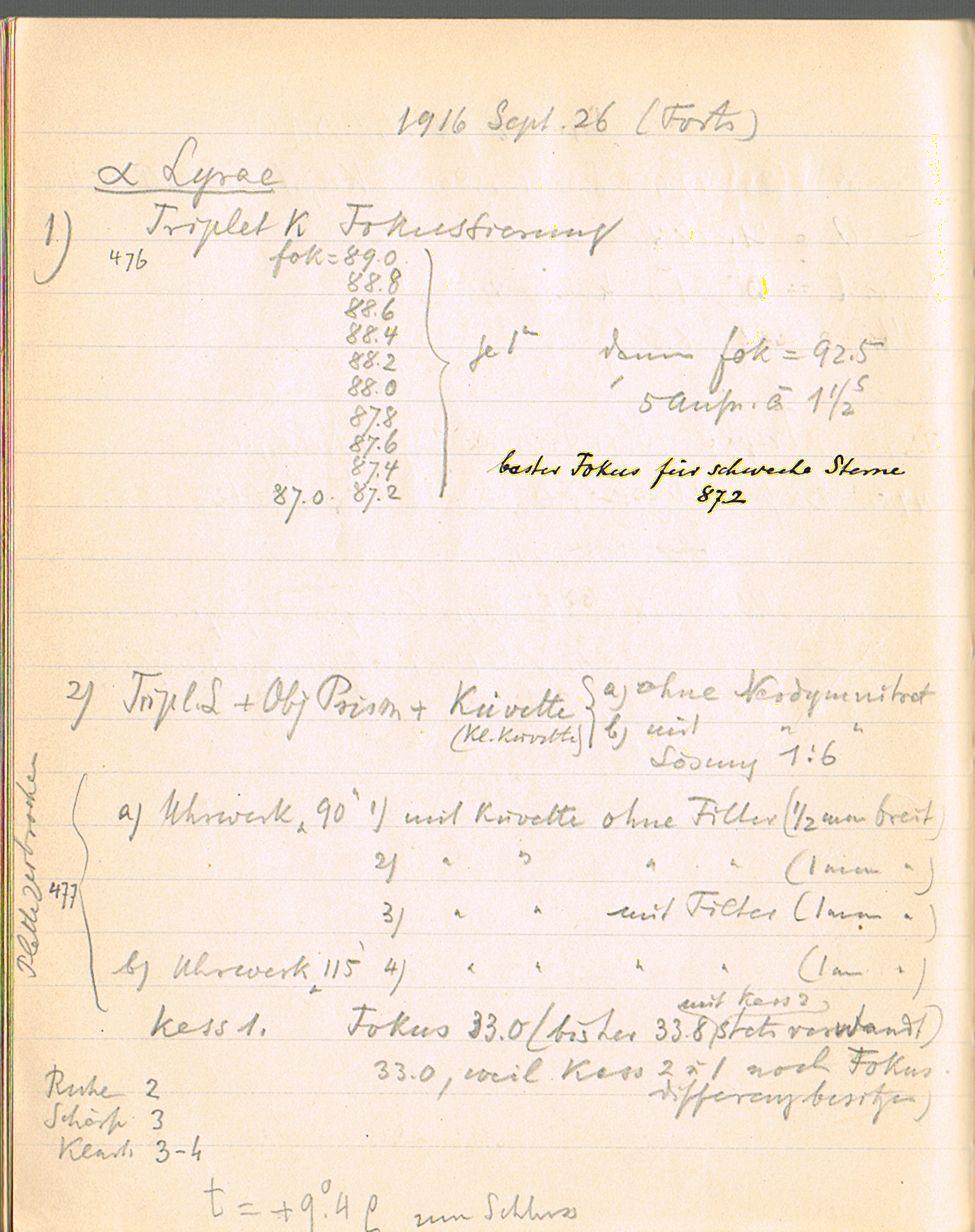 1916 Sept. 26 (Forts)
α Lyrae
1) Triplet K Fokussierung
476 fok = 89.0
88.8
88.6
88.4
88.2
88.0
87.8
87.6
87.4
87.0 87.2
je 1ᵐ dann fok = 92.5
5 Aufn. à 1 1/2ˢ
bester Fokus für schwache Sterne
87.2
2) Tripl. + Obj Prism + Küvette
(Kl. Küvette)
a) ohne Neodymnitrat
b) mit " "
Lösung 1:6
Platte zerbrochen
477
a) Uhrwerk 90 1) mit Küvette ohne Filter (1/2 mm breit)
2) " " " " (1 mm ")
3) " " mit Filter (1 mm ")
b) Uhrwerk 115 4) " " " " (1 mm ")
mit Kass 2
Kass 1. Fokus 33.0 (bisher 33.8) stets verwandt)
33.0, weil Kass 2 u 1 noch Fokus
differenz besitzen)
Ruhe 2
Schärfe 3
Klarh. 3-4
t = +9°.4 C zum Schluss